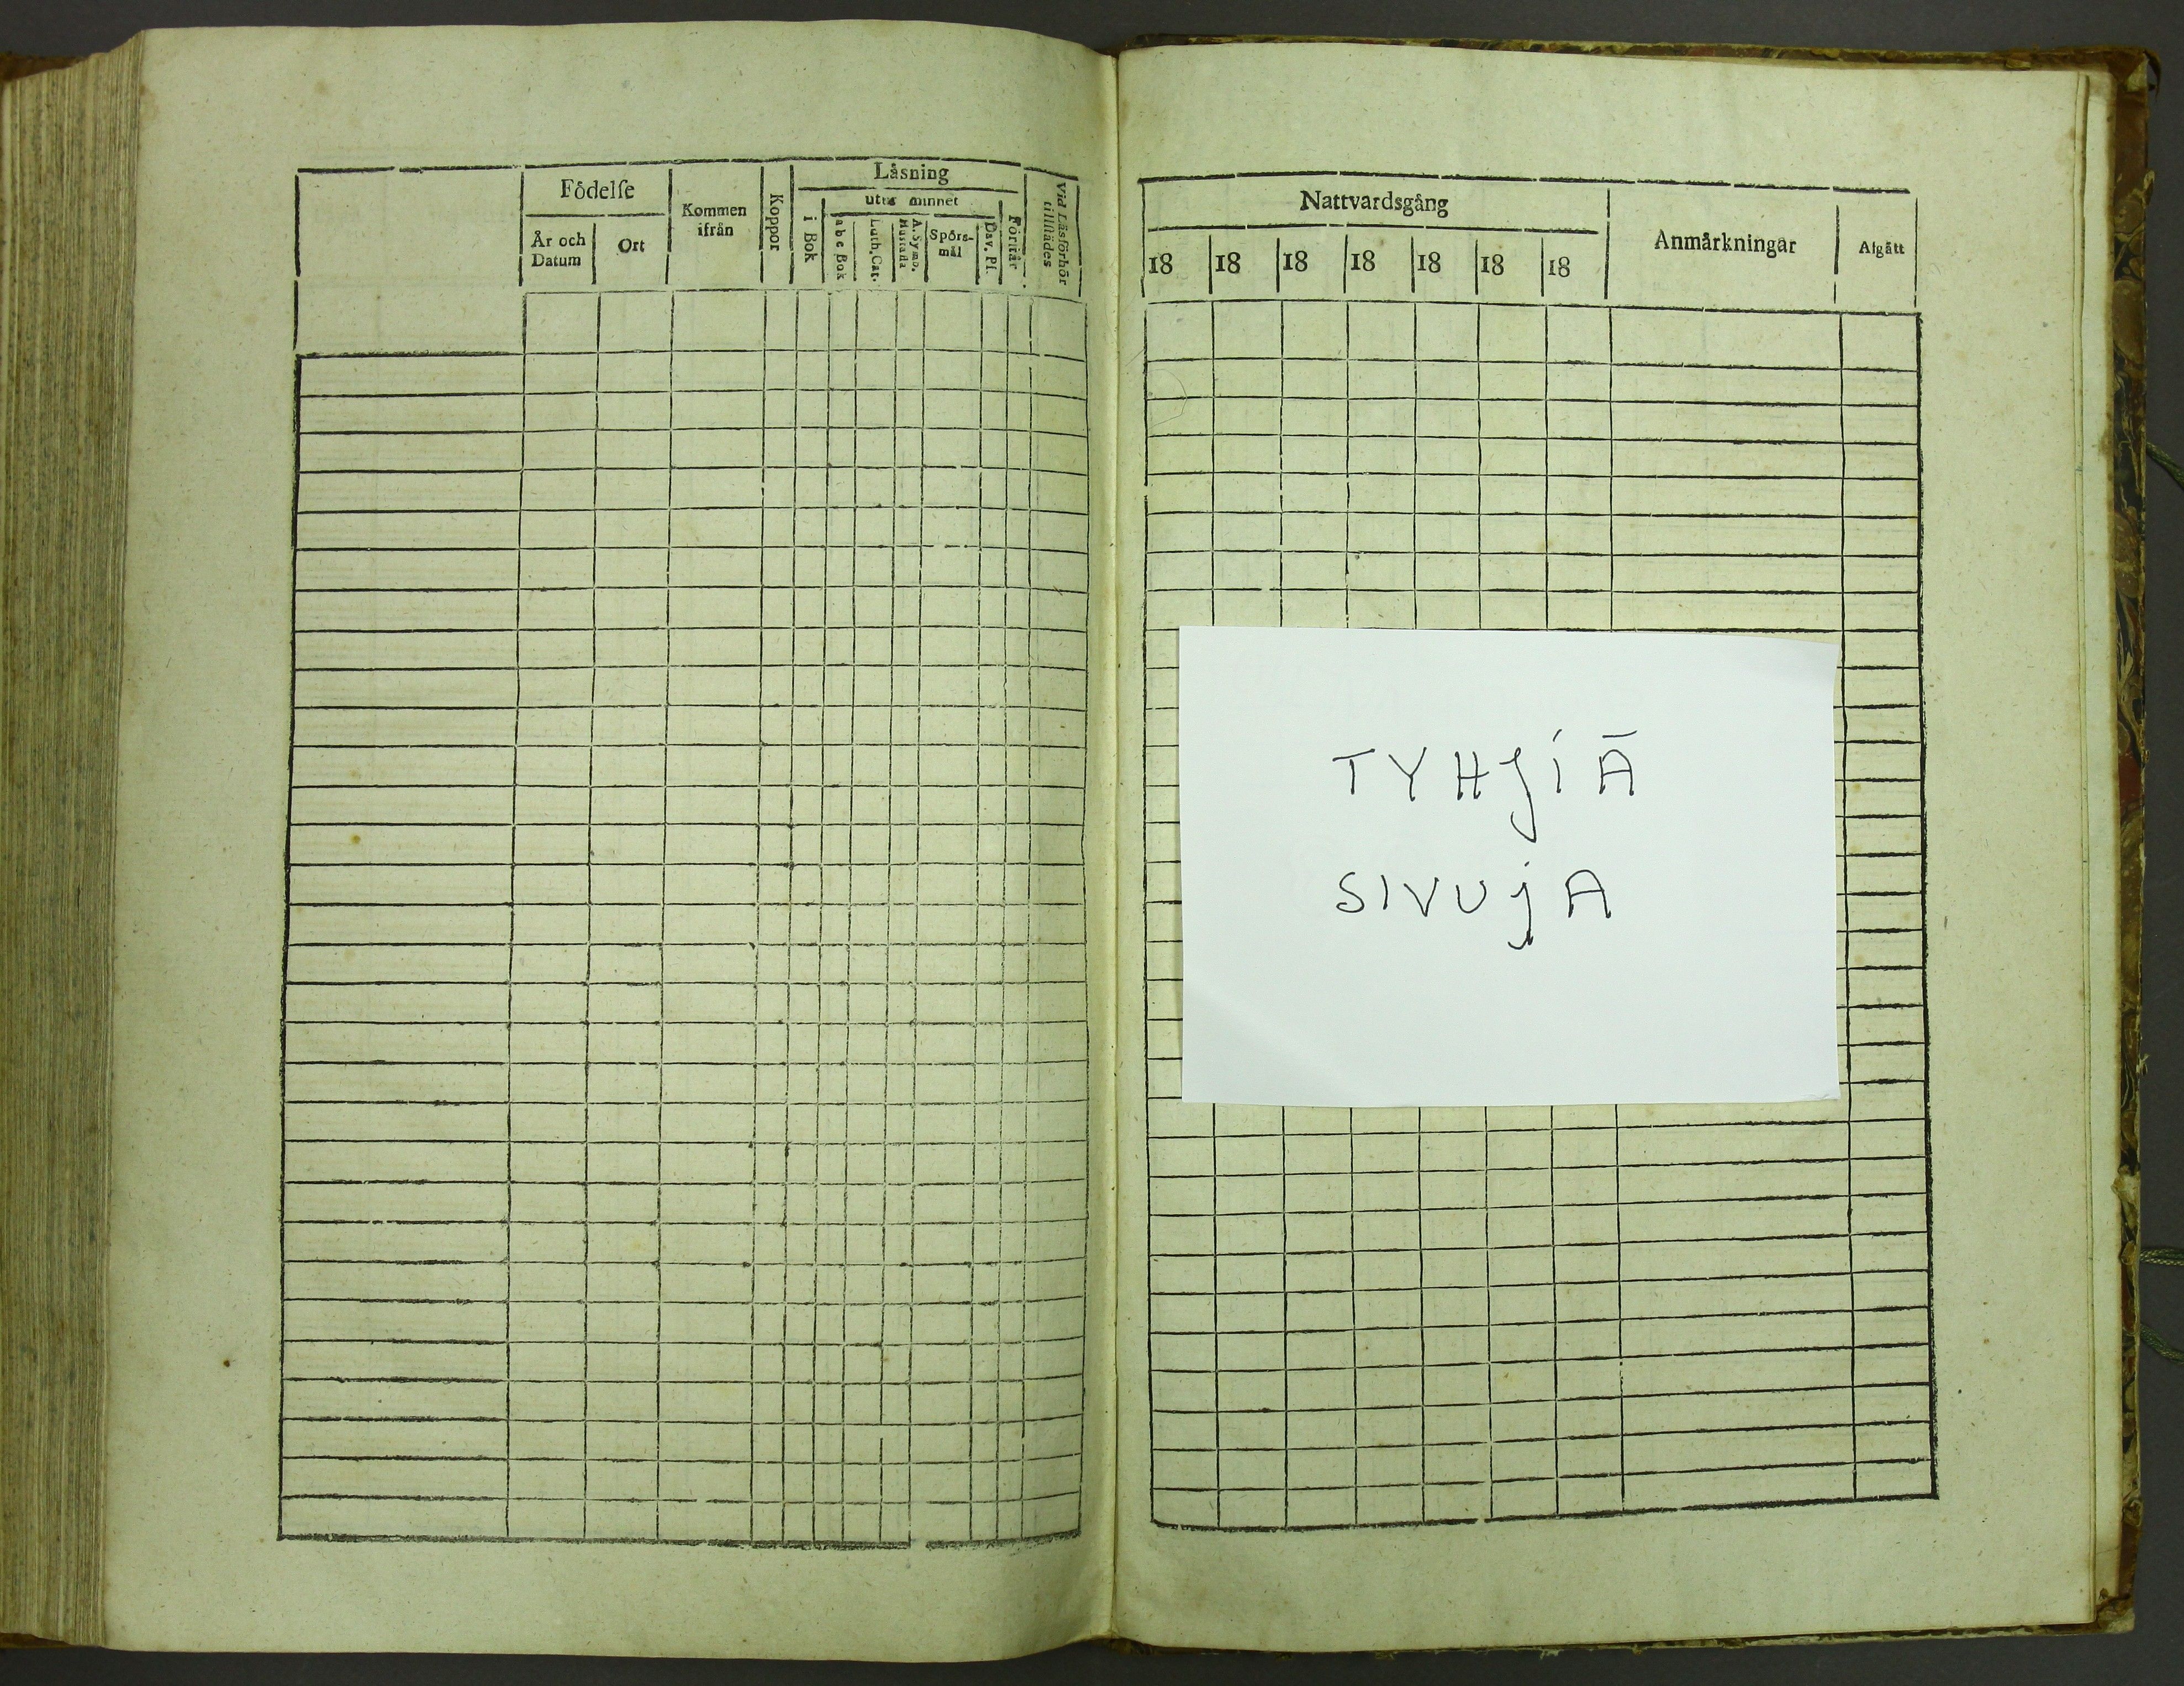 Födelſe
År och Datum
Ort
Kommen ifrån
Koppor
Läsning
i Bok
utur minnet
a b c Bok
Luth. Cat.
A. Symb. Hustafla
Spörs-
mål
Dav. Pſ.
Förſtår
Vid Läsförhör
tillſtädes
Nattvardsgång
18 18 18 18 18 18 18
Anmärkningar
Afgått
TYHJIÄ
SIVUJA